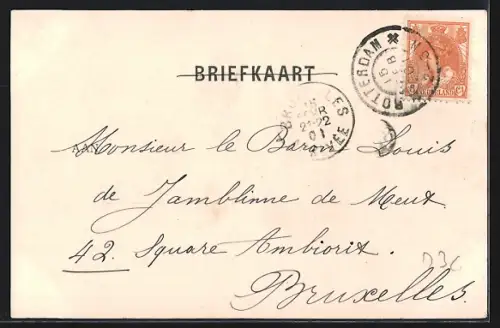 BRIEFKAART
ROTTERDAM
BRUXELLES
21-22
01
NEDERLAND
Monsieur le Baron Louis
de Jamblinne de Meux
42. Square Ambiorix.
Bruxelles.